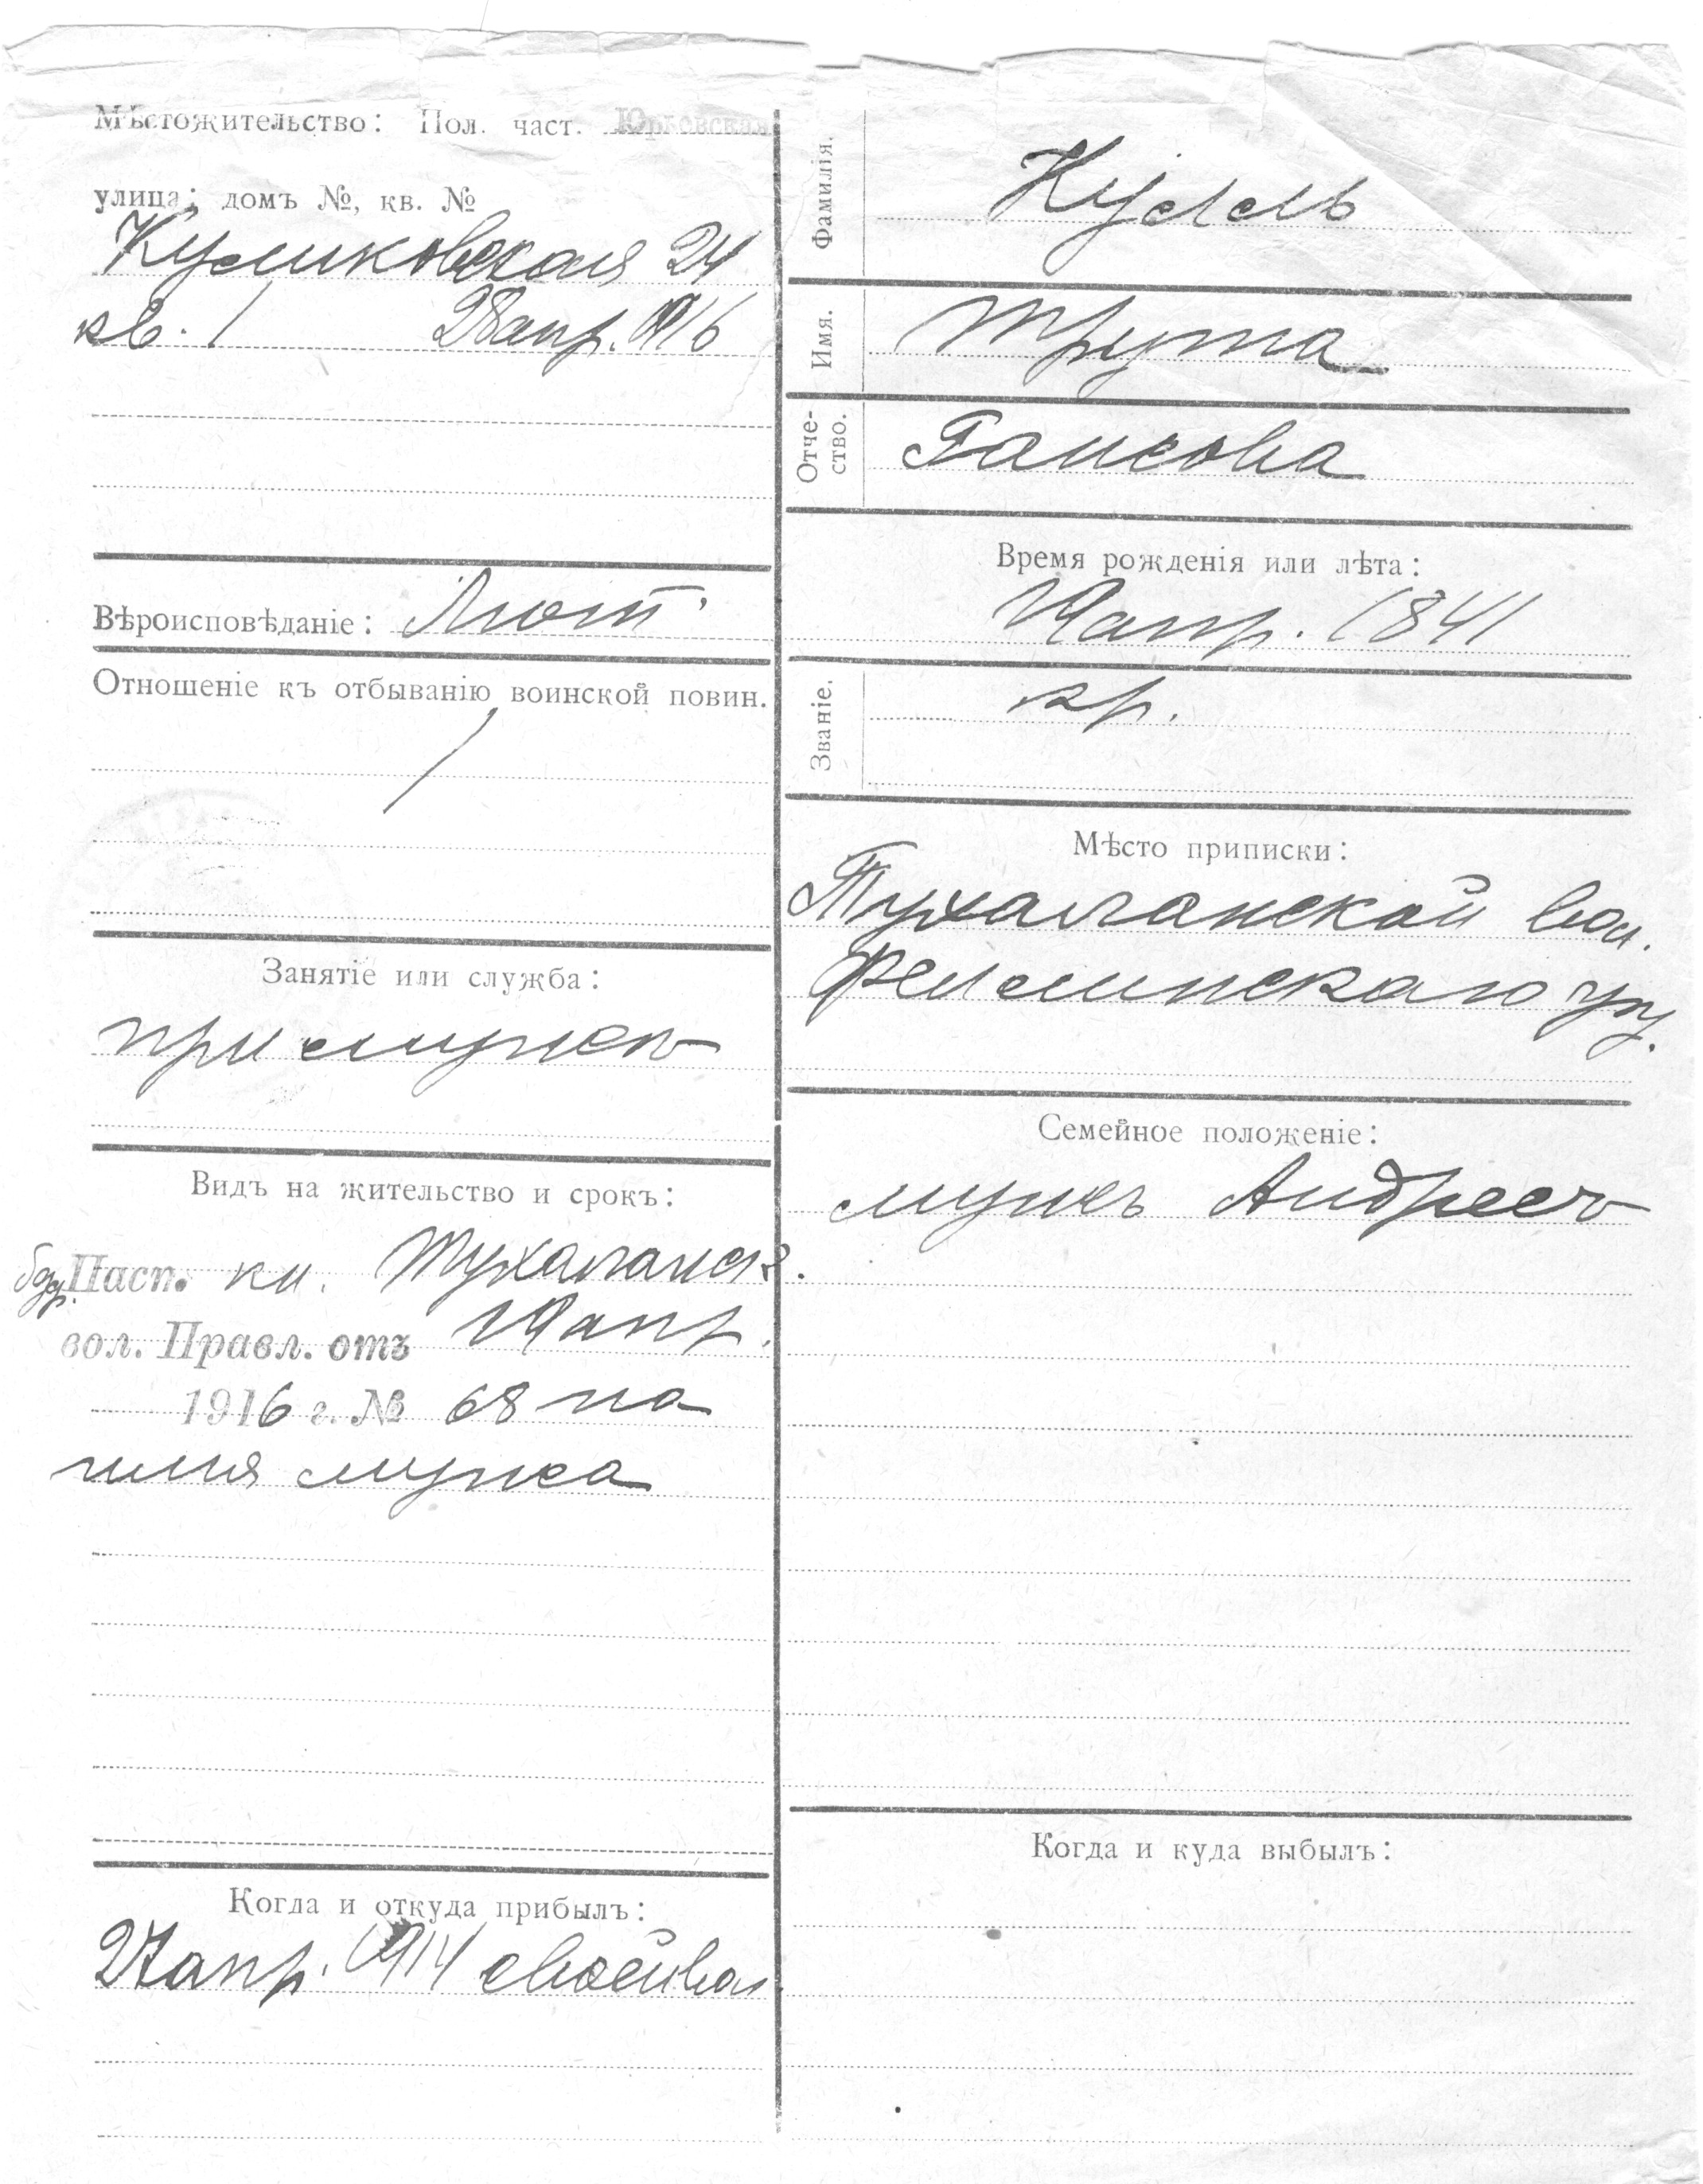 Мѣстожительство: Пол. част. Юрьевская
улица; домъ №, кв. №
Куликовская 24
кв. 1 28 апр. 1916
Вѣроисповѣданіе: Лют.
Отношеніе къ отбыванію воинской повин.
Занятіе или служба:
при мужѣ
Видъ на жительство и срокъ:
Пасп. кн. Тухаланск.
вол. Правл. отъ 19 апр.
1916 г. № 68 на
имя мужа
Когда и откуда прибылъ:
апр. 1914 своей вол.
Фамилія.
Кулль
Имя.
Трута
Отче-
ство.
Гансова
Время рожденія или лѣта:
апр. 1841
Званіе.
кр.
Мѣсто приписки:
Тухаланской вол.
Феллинскаго у.
Семейное положеніе:
мужъ Андресъ
Когда и куда выбылъ: